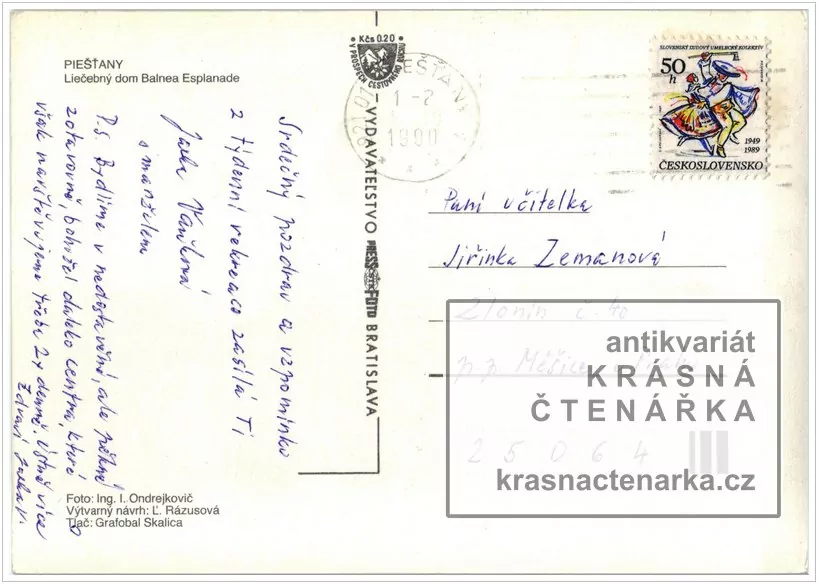 PIEŠŤANY
Liečebný dom Balnea Esplanade
Kčs 0.20
V PROSPECH CESTOVNÉHO RUCHU
PIEŠŤANY
921 01
1-2
1990
SLOVENSKÝ ĽUDOVÝ UMELECKÝ KOLEKTÍV
50 h
1949
1989
ČESKOSLOVENSKO
Srdečný pozdrav a vzpomínku
z týdenní rekreace zasílá Ti
Jarka
s manželem
P.S. Bydlíme v nedostavěné, ale pěkné
zotavovně, bohužel daleko centra, které
však navštěvujeme třeba 2x denně. Ústně více
Zdraví Jarka V.
VYDAVATEĽSTVO PRESSFOTO BRATISLAVA
Paní učitelka
Jiřinka Zemanová
Zlonín č. 40
p.p. Měšice u Prahy
25064
antikvariát
KRÁSNÁ
ČTENÁŘKA
krasnactenarka.cz
Foto: Ing. I. Ondrejkovič
Výtvarný návrh: Ľ. Rázusová
Tlač: Grafobal Skalica